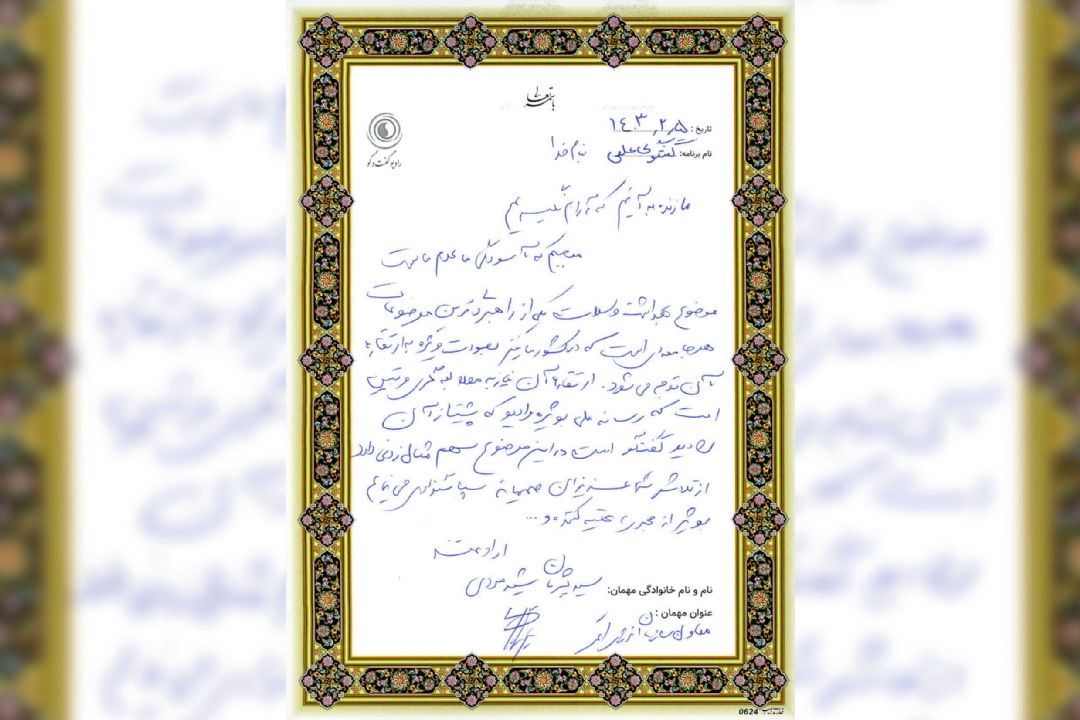 باسمه تعالی
رادیو گفت و گو
تاریخ : ۱۴۰۳٫۲٫۵
نام برنامه: گفتگوی علمی
بنام خدا
ما زنده به آنیم که آرام نگیریم
موجیم که آسودگی ما عدم ماست
موضوع بهداشت و سلامت یکی از راهبردی ترین موضوعات
هر جامعه ای است که در کشور ما نیز بصورت ویژه به ارتقاء
آن توجه می شود. ارتقاء آن نیاز به مطالبه گری و تبیین
است که رسانه ملی بویژه رادیو که پیشتاز آن
رادیو گفتگو است در این موضوع سهم مثال زدنی دارد
از تلاش شما عزیزان صمیمانه سپاسگزاری می نمایم
بویژه از مجری، تهیه کننده و ...
ارادتمند
نام و نام خانوادگی مهمان: سید پژمان
عنوان مهمان : معاون سازمان انرژی اتمی
0624